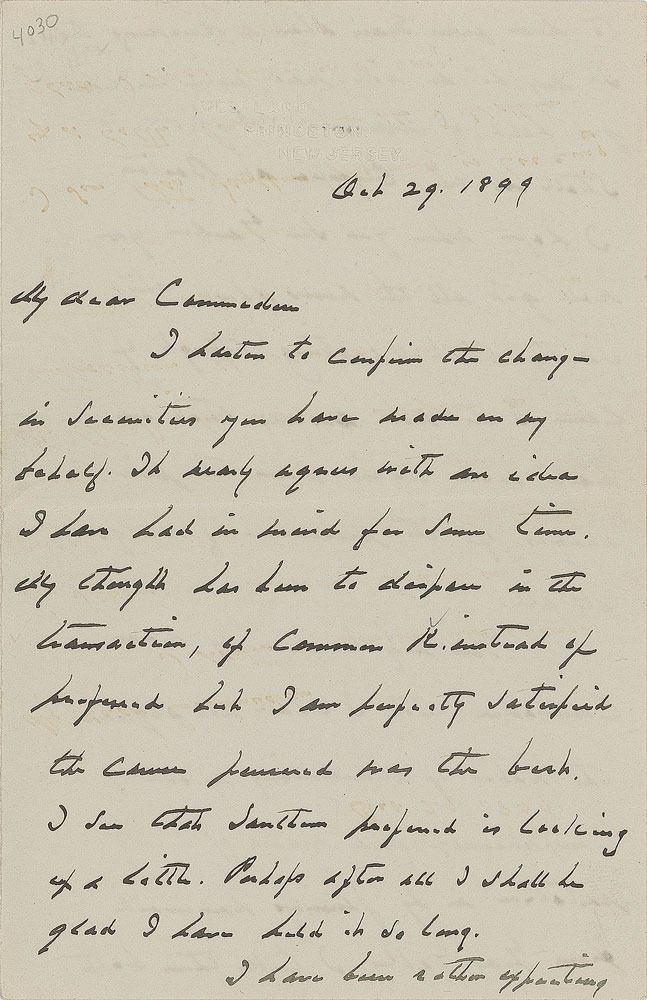 4030
WESTLAND
PRINCETON
NEW JERSEY.
Oct 29. 1899
My dear Commodore
I hasten to confirm the change
in securities you have made on my
behalf. It nearly agrees with an idea
I have had in mind for some time.
My thought has been to dispose in the
transaction, of Common K. instead of
preferred but I am perfectly satisfied
the course pursued was the best.
I see that Southern preferred is looking
up a little. Perhaps after all I shall be
glad I have held it so long.
I have been rather expecting